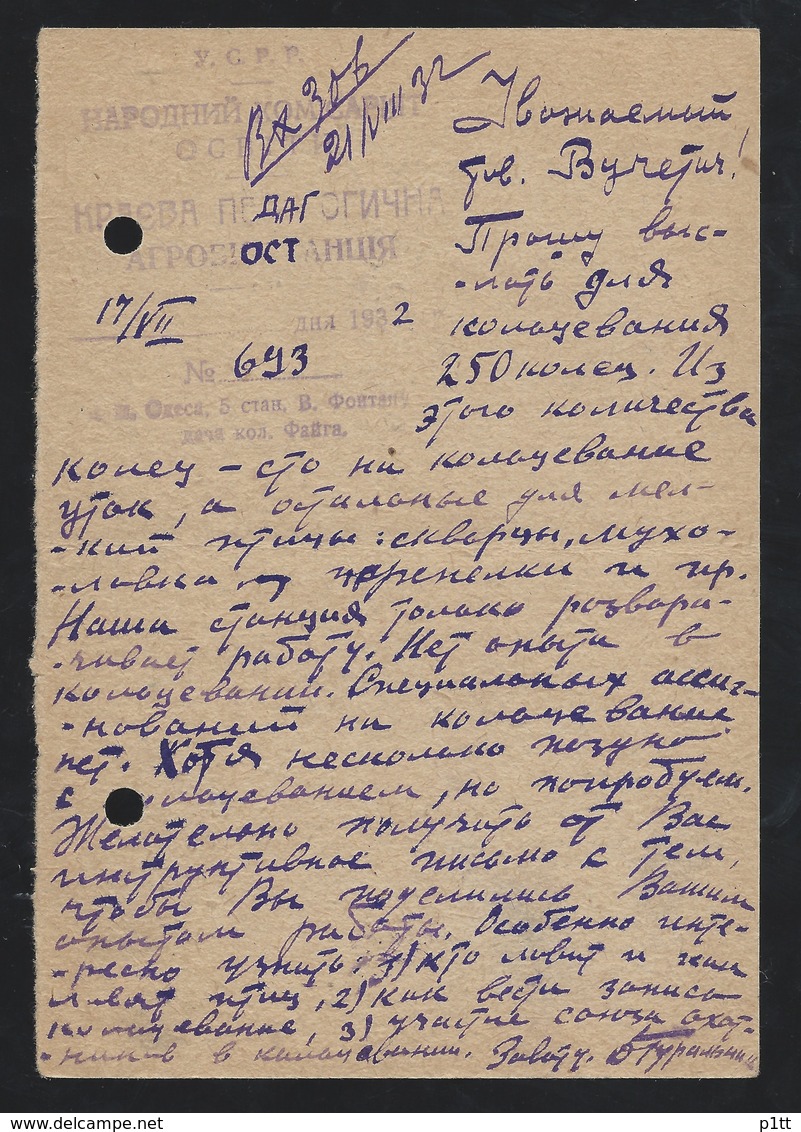 У.С.Р.Р.
НАРОДНИЙ КОМІСАРІАТ
ОСВІТИ
КРАЄВА ПЕДАГОГИЧНА
АГРОБІОСТАНЦІЯ
17/VII дня 1932
№ 693
м. Одеса, 5 стан. В. Фонтану
дача кол. Файга.
21/VIII 32
Уважаемый
тов. Вучетич!
Прошу выс-
-лать для
кольцевания
250 колец. Из
этого количества
колец – сто на кольцевание
уток, а остальные для мел-
-кий птицы: скворцы, мухо-
-ловки, перепелки и пр.
Наша станция только розвора-
-чивает работу. Нет опыта в
кольцевании. Специальных ассиг-
-нований на кольцевание
нет. Хотя несколько поздно
с кольцеванием, но попробуем.
Желательно получить от Вас
инструктивное письмо с тем,
чтобы Вы поделились Вашим
опытом работы. Особенно инте-
-ресно узнать: 1) кто ловит и как
ловят птиц, 2) как вести запись
кольцевание, 3) участие союза охот-
-ников в кольцевании. Завоту.
p1tt